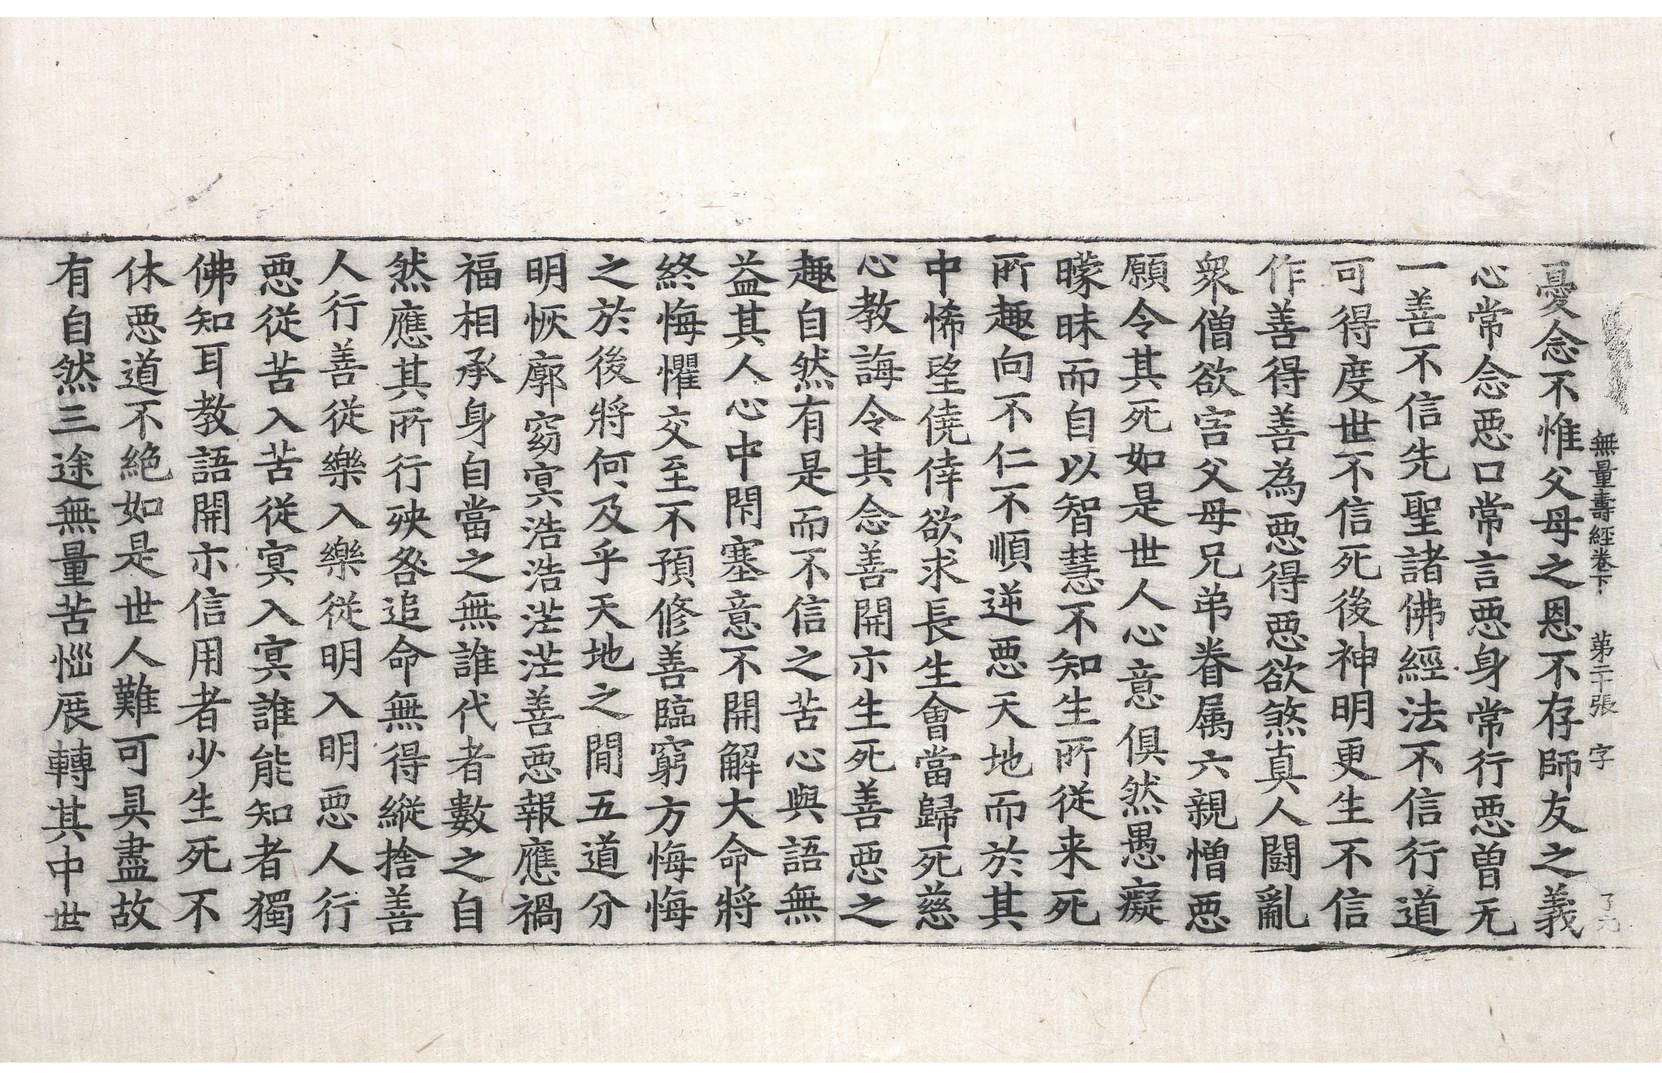 無量壽經卷下 第二十張 字 了元
憂念不惟父母之恩不存師友之義
心常念惡口常言惡身常行惡曽无
一善不信先聖諸佛經法不信行道
可得度世不信死後神明更生不信
作善得善為惡得惡欲煞真人鬪亂
衆僧欲害父母兄弟眷属六親憎惡
願令其死如是世人心意俱然愚癡
曚昧而自以智慧不知生所従来死
所趣向不仁不順逆惡天地而於其
中悕望僥倖欲求長生會當歸死慈
心教誨令其念善開示生死善惡之
趣自然有是而不信之苦心與語無
益其人心中閇塞意不開解大命將
終悔懼交至不預修善臨窮方悔悔
之於後將何及乎天地之閒五道分
明恢廓窈冥浩浩茫茫善惡報應禍
福相承身自當之無誰代者數之自
然應其所行殃咎追命無得縱捨善
人行善従樂入樂従明入明惡人行
惡従苦入苦従冥入冥誰能知者獨
佛知耳教語開示信用者少生死不
休惡道不絶如是世人難可具盡故
有自然三途無量苦惱展轉其中世